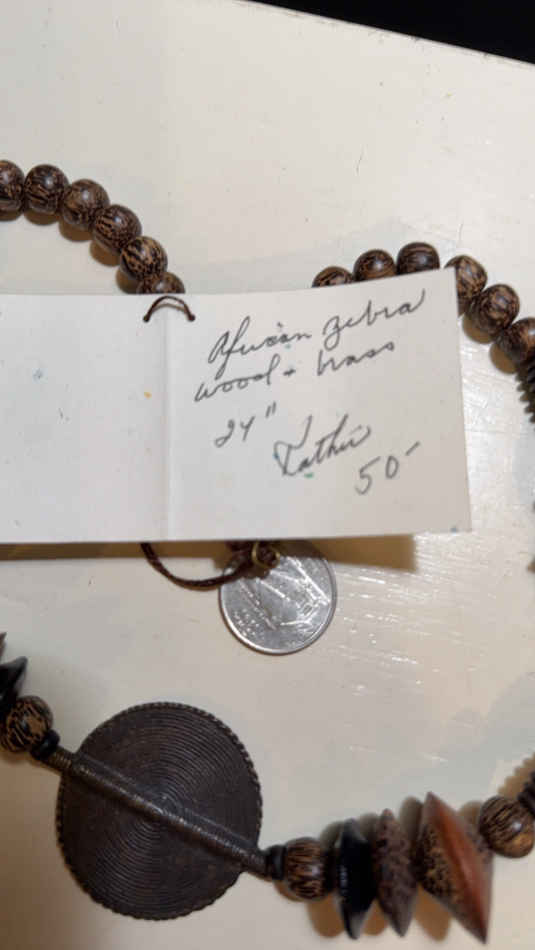 African zebra
wood + brass
24"
Kathie
50-